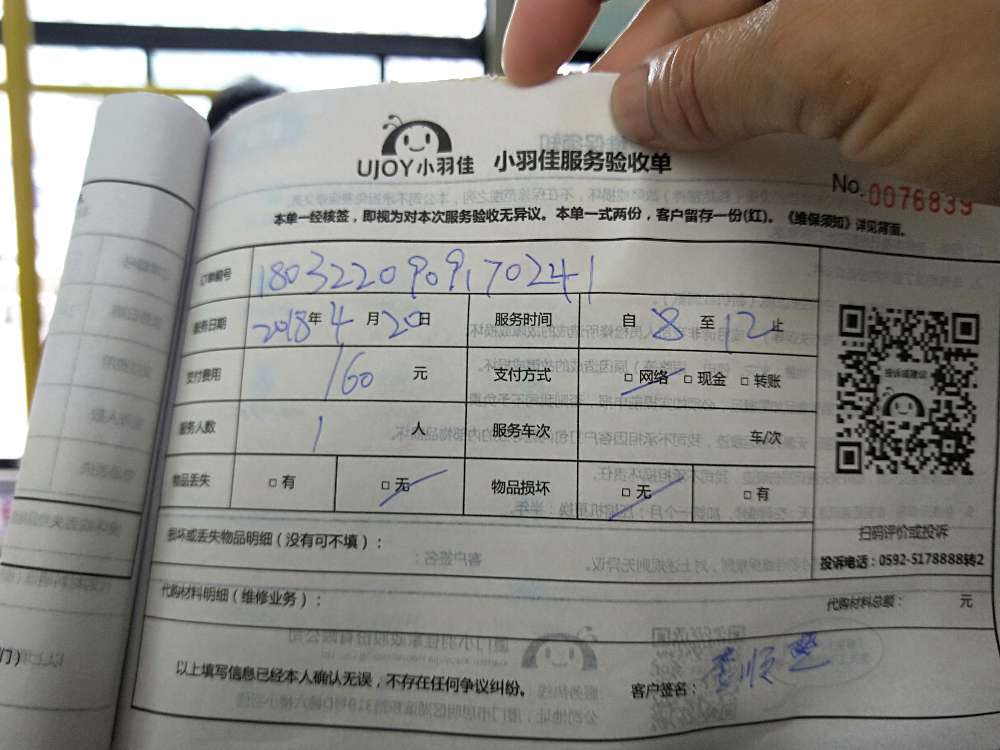 UJOY小羽佳 小羽佳服务验收单
No.0076839
本单一经核签，即视为对本次服务验收无异议。本单一式两份，客户留存一份(红)。《维保须知》详见背面。
订单编号 1803220909170241
服务日期 2018年4月20日 服务时间 自8至12止
支付费用 160元 支付方式 □网络 □现金 □转账
服务人数 1人 服务车次 车/次
物品丢失 □有 □无 物品损坏 □无 □有
投诉或建议
扫码评价或投诉
投诉电话：0592-5178888转2
损坏或丢失物品明细（没有可不填）：
代购材料明细（维修业务）： 代购材料总额： 元
以上填写信息已经本人确认无误，不存在任何争议纠纷。 客户签名：